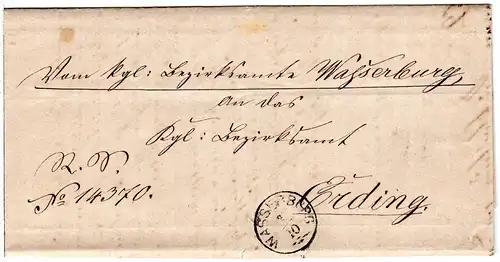 Vom kgl: Bezirksamte Wasserburg
An das
Kgl: Bezirksamt
R. S.
No 14370.
Erding.
WASSERBURG
10